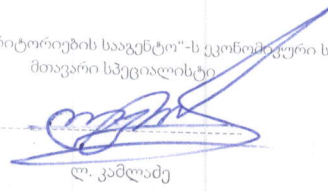 რიტორიების სააგენტო“-ს ეკონომიკური ს
მთავარი სპეციალისტი
ლ. კამლაძე